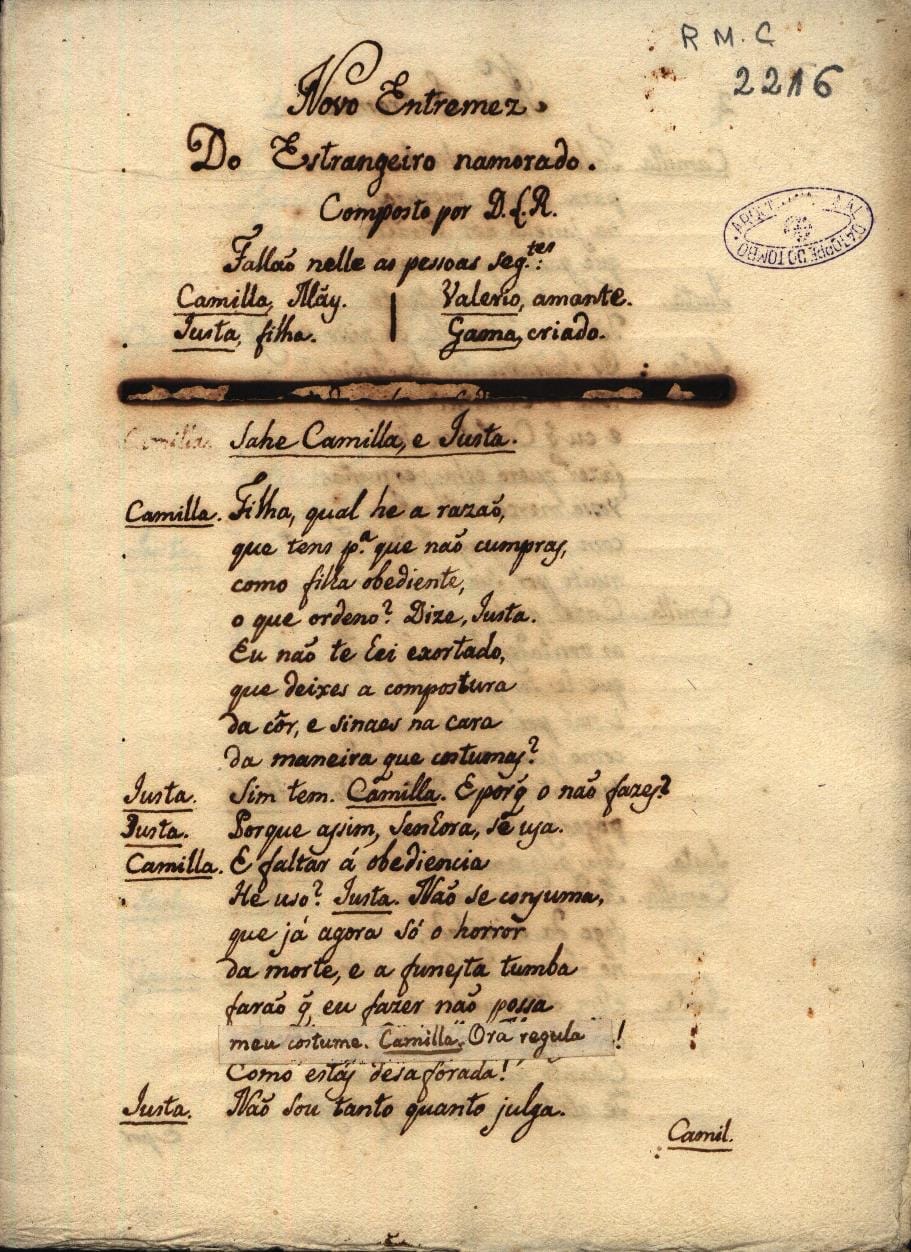 R M. C
2216
Novo Entremez
Do Estrangeiro namorado.
Composto por D. L. R.
Fallaõ nelle as pessoas seg.tes:
Camilla, Mãy.
Valerio, amante.
Iusta, filha.
Gama, criado.
DA TORRE DO TOMBO
Camilla.
Sahe Camilla, e Iusta.
Camilla. Filha, qual he a razaõ,
que tens p.a que naõ cumpras,
como filha obediente,
o que ordeno? Dize, Iusta.
Eu naõ te hei exortado,
que deixes a compostura
da côr, e sinaes na cara
da maneira que costumas?
Iusta. Sim tem. Camilla. E porq̃ o naõ fazes?
Iusta. Porque assim, senhora, se usa.
Camilla. E faltar á obediencia
He uso? Iusta. Naõ se consuma,
que já agora só o horror
da morte, e a funesta tumba
faraõ q̃ eu fazer naõ possa
meu costume. Camilla. Ora regula!
Como estás desaforada!
Iusta. Naõ sou tanto quanto julga.
Camil.